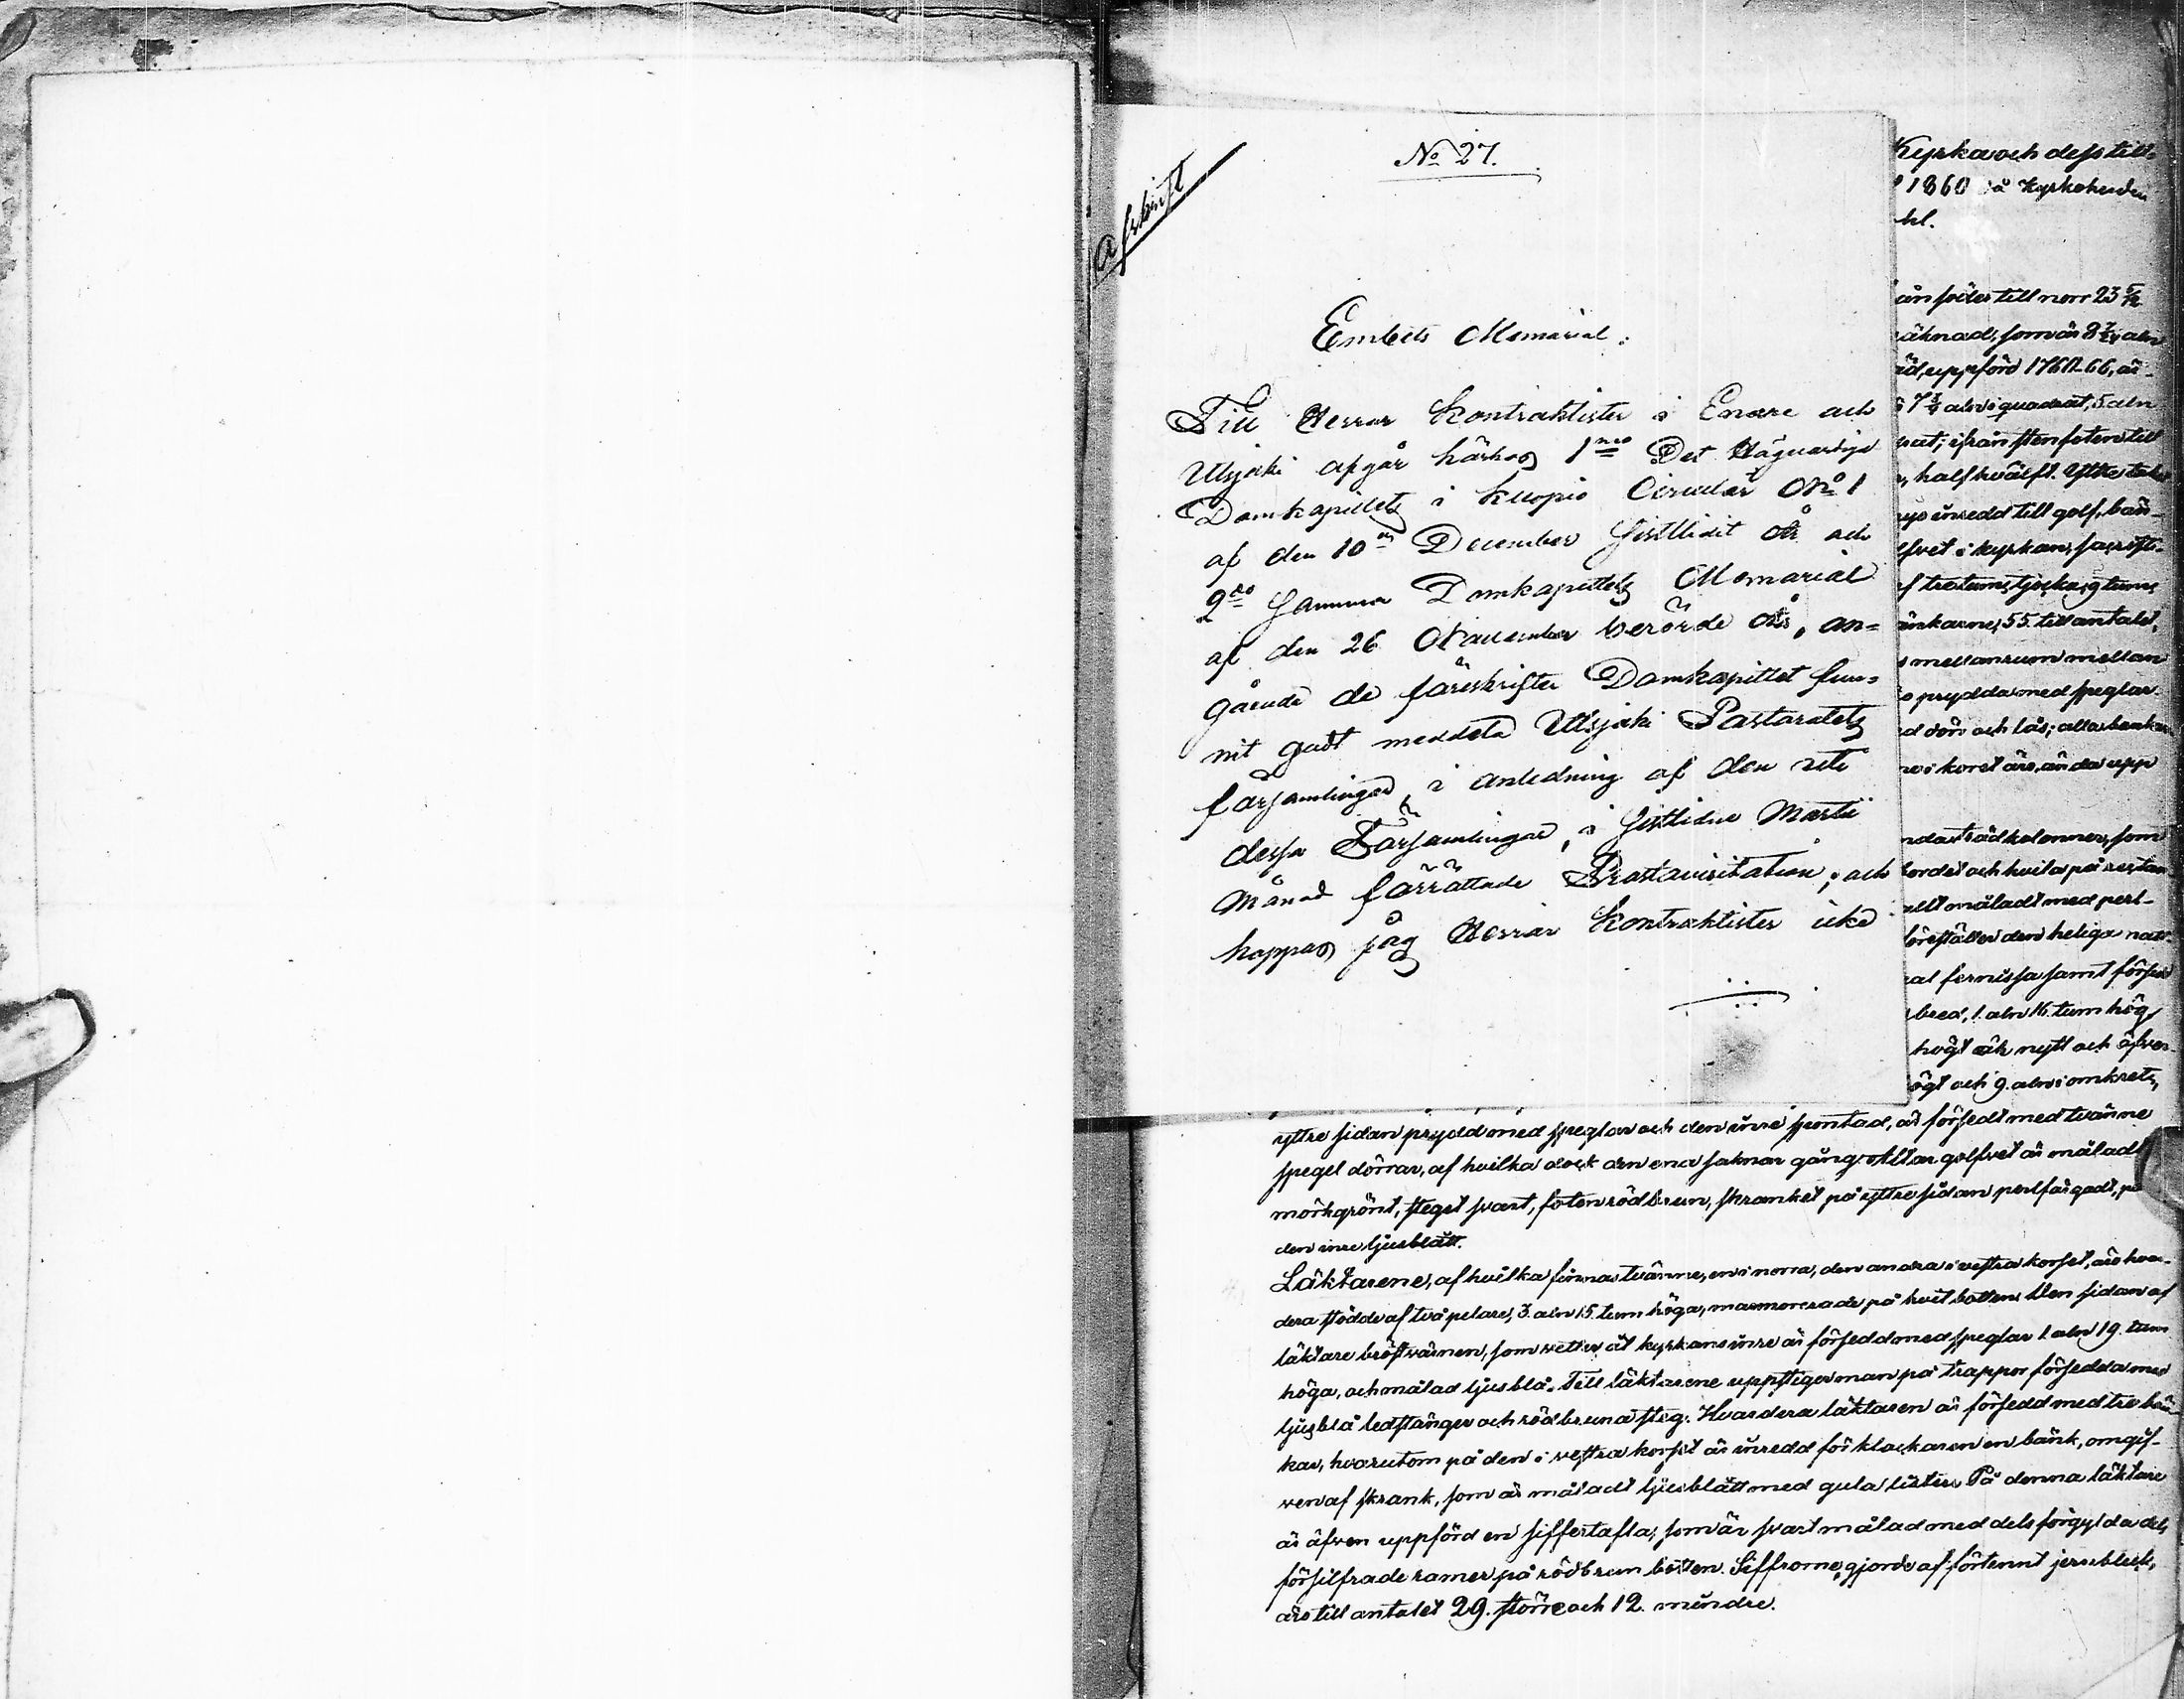 Afskrift
No 27.
Embets Memorial.
Till Herrar Kontraktister i Enare och
Utsjoki afgår härhos 1mo Det Högvördiga
Domkapitlets i Kuopio Circulär No 1
af den 10 December sistlidit år och
2do samma Domkapitlets Memorial
af den 26 November berörde år, an-
gående de föreskrifter Domkapitlet fun-
nit godt meddela Utsjoki Pastorats
församlingar, i anledning af den uti
dessa Församlingar, i sistlidne Martii
Månad förrättade Prostavisitation; och
hoppas jag Herrar Kontraktister icke
Kyrka och dess till-
1860 Kyrkoherden
hl.
ån söder till norr 23 5/12
äknad, som är 8 7/24 aln
äd, uppförd 1760-66, är
7 3/4 aln i quadrat, 5 aln
rat; ifrån stenfoten till
halfhvälft. Yttre taket
inredd till golf, bän-
fvet i kyrkan, sacrist-
f tretums tjocka, 9 tums
änkarne, 55. till antalet,
mellanrum mellan
prydda med speglar.
d dörr och lås; alla bänkar
i koret äro, ända upp
nda trädkolonner, som
bordet och hvila på
allt måladt med perl-
föreställer den heliga natt-
al fernissa samt försedd
bred, 1. aln 16. tum hög,
högt är nytt och öfver-
ögt och 9. aln i omkrets,
yttre sidan prydd med speglar och den inre spontad, är försedt med tvänne
spegel dörrar, af hvilka dock den ena saknar gång. Altar golfvet är måladt
mörkgrönt, steget svart, foten rödbrun, skranket på yttre sidan perlfärgadt, på
den inre ljusblått.
Läktarene, af hvilka finnas tvänne, en i norra, den andra i vestra korset, äro hva-
dera stödde af två pelare, 3. aln 15. tum höga, marmorerade på hvit botten. Den sidan af
läktare bröstvärnen, som vetter åt kyrkans inre är försedd med speglar 1. aln 19. tum
höga, och målad ljusblå. Till läktarene uppstiger man på trappor försedda med
ljusblå ledstänger och rödbruna steg. Hvardera läktaren är försedd med tre bän-
kar, hvarutom på den i vestra korset är inredd för klockaren en bänk, omgif-
ven af skrank, som är måladt ljusblått med gula lister. På denna läktare
är äfven uppförd en siffertafla, som är svart målad med dels förgylda dels
försilfrade ramer på rödbrun botten. Siffrorne, gjorde af förtennt jernbleck,
äro till antalet 29. större och 12. mindre.